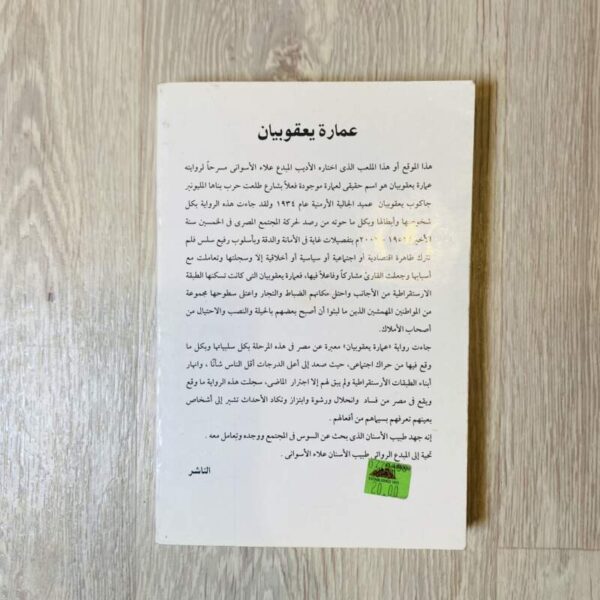 عمارة يعقوبيان
هذا الموقع أو هذا الملعب الذى اختاره الأديب المبدع علاء الأسوانى مسرحاً لروايته
عمارة يعقوبيان هو اسم حقيقى لعمارة موجودة فعلاً بشارع طلعت حرب بناها المليونير
جاكوب يعقوبيان عميد الجالية الأرمنية عام ١٩٣٤ ولقد جاءت هذه الرواية بكل
شخوصها وأبطالها وبكل ما حوته من رصد لحركة المجتمع المصرى فى الخمسين سنة
بتفصيلات غاية فى الأمانة والدقة وبأسلوب رفيع سلس فلم
تترك ظاهرة اقتصادية أو اجتماعية أو سياسية أو أخلاقية إلا وسجلتها وتعاملت مع
أسبابها وجعلت القارئ مشاركاً وفاعلاً فيها، فعمارة يعقوبيان التى كانت تسكنها الطبقة
الارستقراطية من الأجانب واحتلى مكانهم الضباط والتجار واعتلى سطوحها مجموعة
من المواطنين المهمشين الذين ما لبثوا أن أصبح بعضهم بالحيلة والنصب والاحتيال من
أصحاب الأملاك.
جاءت رواية «عمارة يعقوبيان» معبرة عن مصر فى هذه المرحلة بكل سلبياتها وبكل ما
وقع فيها من حراك اجتماعى، حيث صعد إلى أعلى الدرجات أقل الناس شأنًا، وانهار
أبناء الطبقات الأرستقراطية ولم يبق لهم إلا اجترار الماضى، سجلت هذه الرواية ما وقع
ويقع فى مصر من فساد وانحلال ورشوة وابتزاز وتكاد الأحداث تشير إلى أشخاص
بعينهم تعرفهم بسيماهم من أفعالهم .
إنه جهد طبيب الأسنان الذى بحث عن السوس فى المجتمع ووجده وتعامل معه .
تحية إلى المبدع الروائى طبيب الأسنان علاء الأسوانى .
الناشر